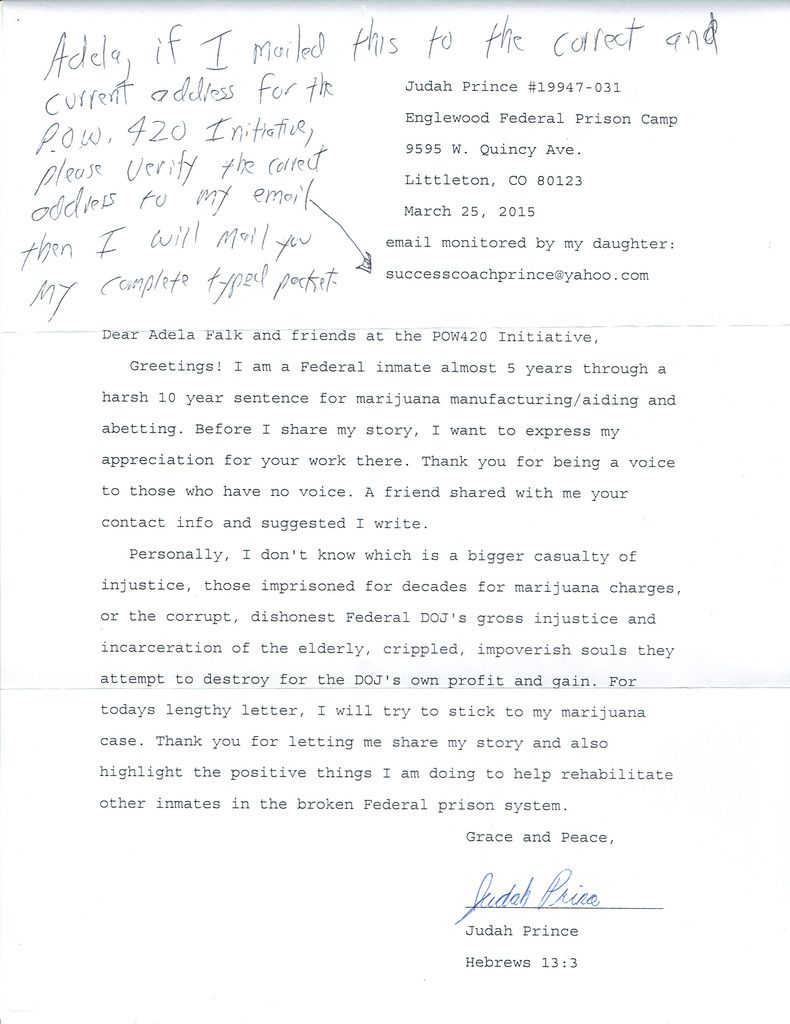 Adela, if I mailed this to the correct and
current address for the
P.O.W. 420 Initiative,
please verify the correct
address to my email
then I will mail you
my complete typed packet.
Judah Prince #19947-031
Englewood Federal Prison Camp
9595 W. Quincy Ave.
Littleton, CO 80123
March 25, 2015
email monitored by my daughter:
successcoachprince@yahoo.com
Dear Adela Falk and friends at the POW420 Initiative,
Greetings! I am a Federal inmate almost 5 years through a
harsh 10 year sentence for marijuana manufacturing/aiding and
abetting. Before I share my story, I want to express my
appreciation for your work there. Thank you for being a voice
to those who have no voice. A friend shared with me your
contact info and suggested I write.
Personally, I don't know which is a bigger casualty of
injustice, those imprisoned for decades for marijuana charges,
or the corrupt, dishonest Federal DOJ's gross injustice and
incarceration of the elderly, crippled, impoverish souls they
attempt to destroy for the DOJ's own profit and gain. For
todays lengthy letter, I will try to stick to my marijuana
case. Thank you for letting me share my story and also
highlight the positive things I am doing to help rehabilitate
other inmates in the broken Federal prison system.
Grace and Peace,
Judah Prince
Judah Prince
Hebrews 13:3